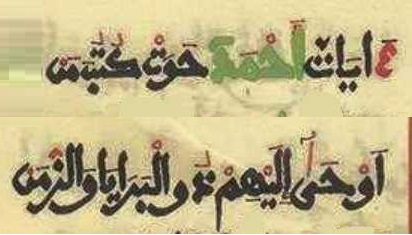 ءايات أَحْمَدَ حَوَتْ كُتُبَ مَن
أَوْحَىٰ إِلَيْهِمْ والْبَرَايَا وَالزَّمَن